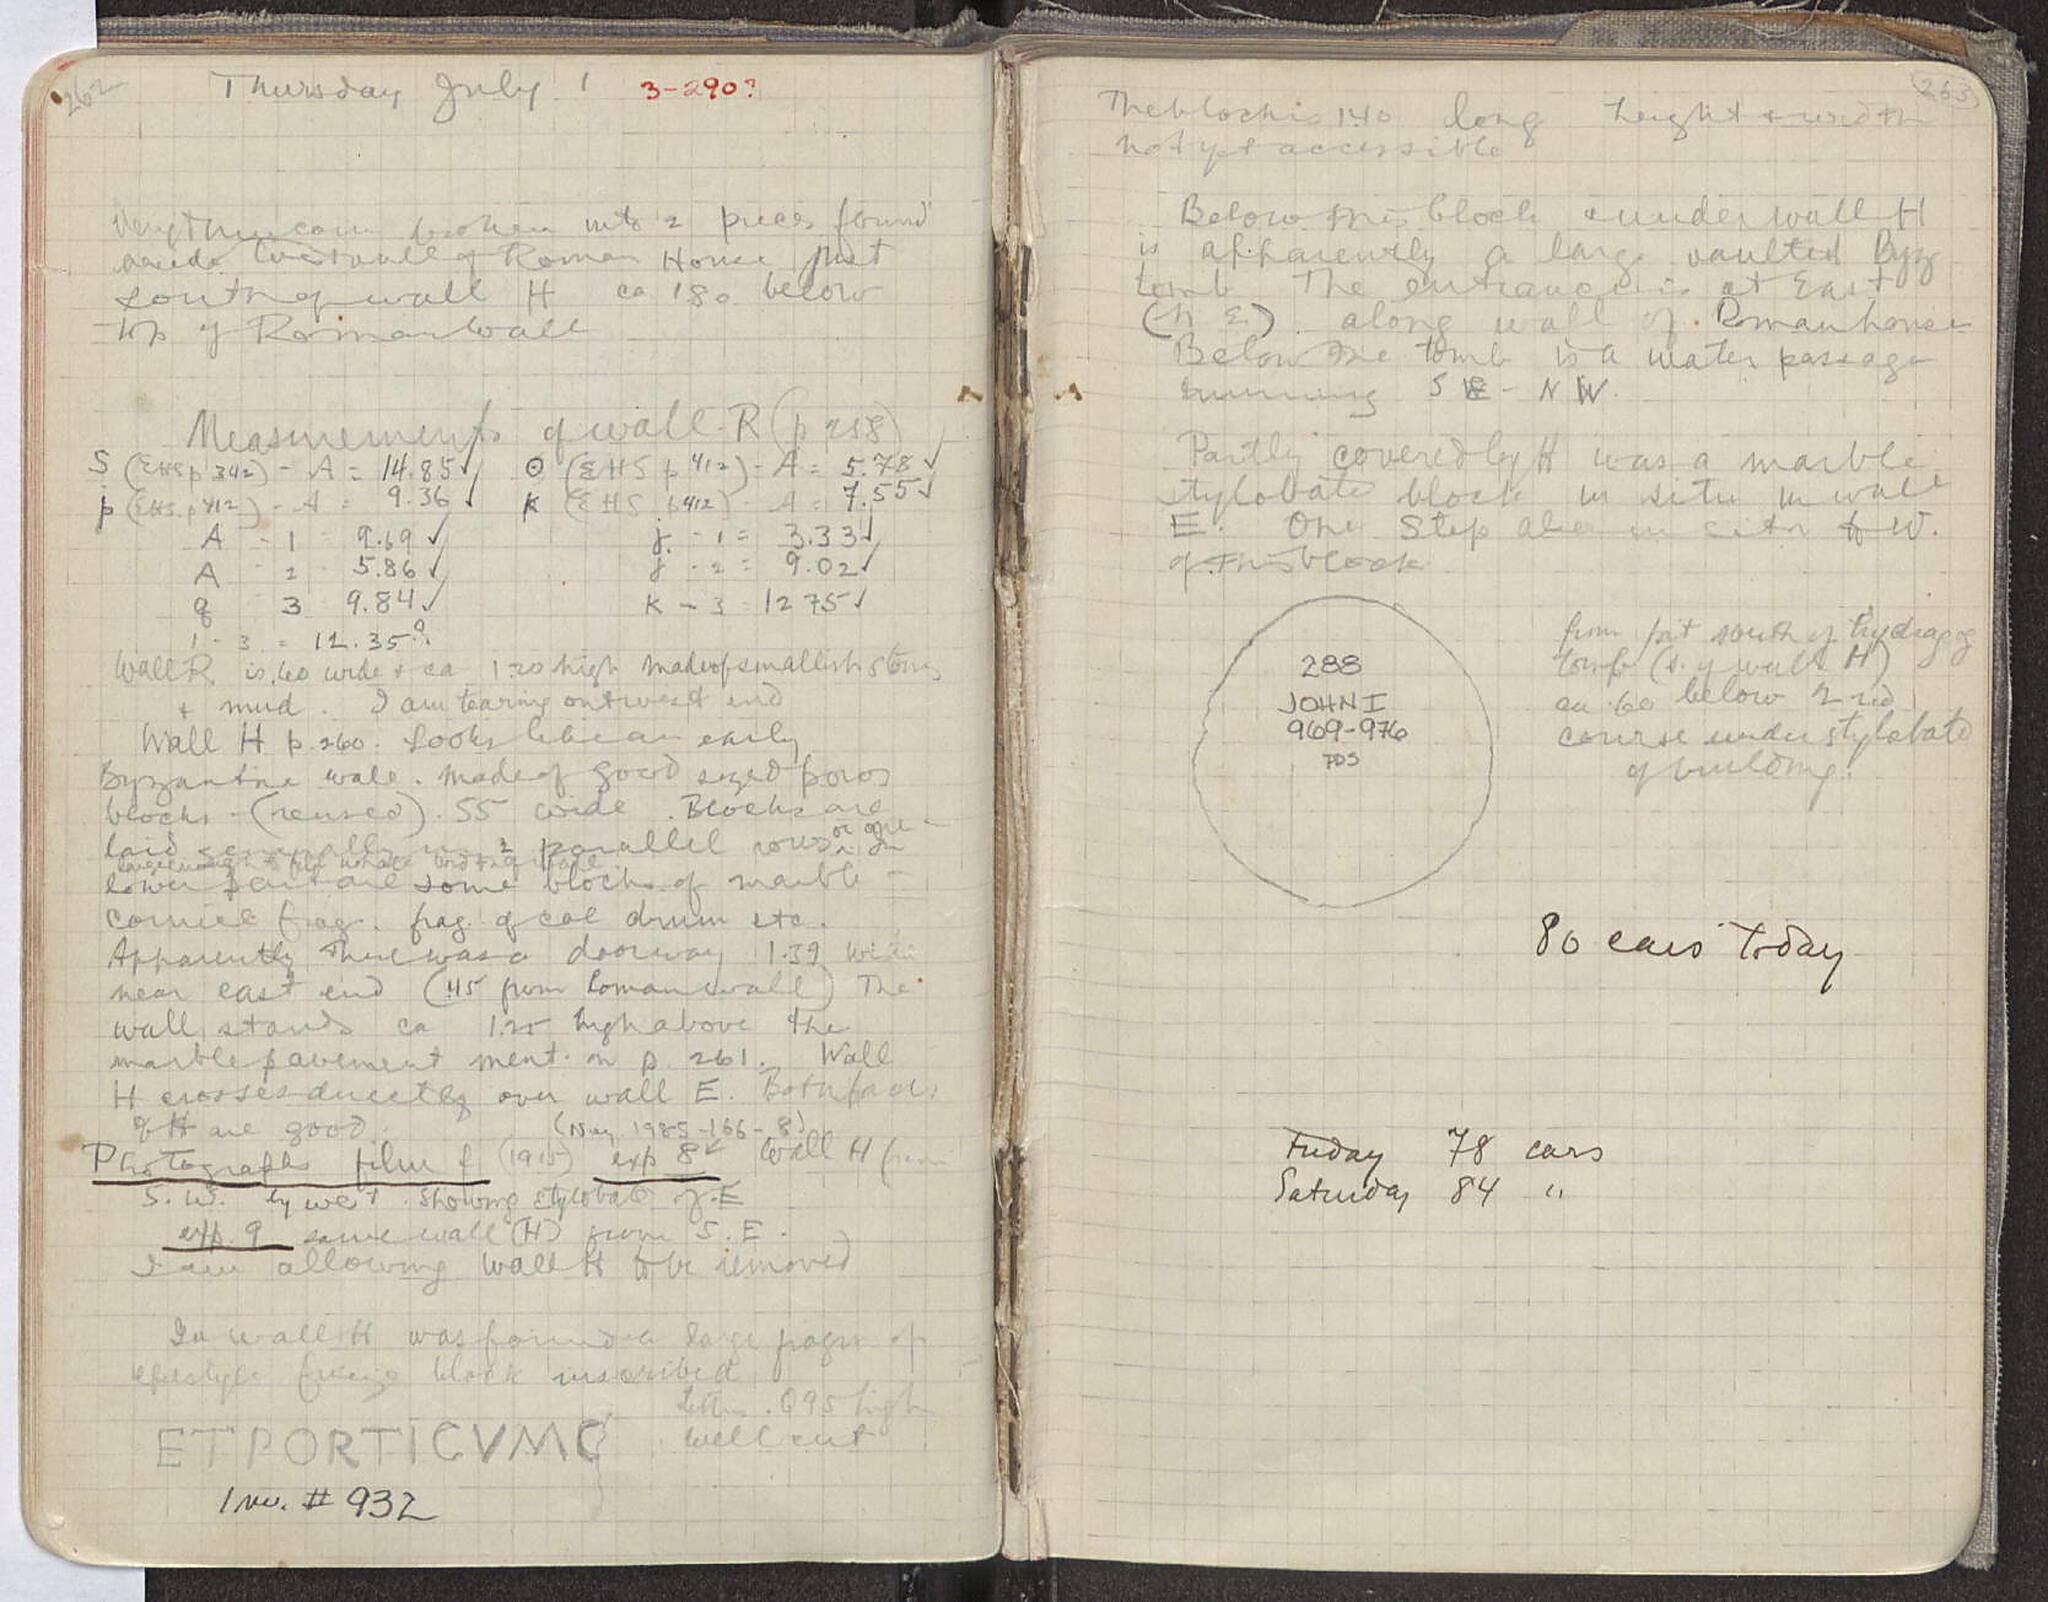 262
Thursday July 1 3-290?
Very thin coin broken into 2 pieces found
beside West wall of Roman House just
south of wall H ca 1.80 below
top of Roman wall
Measurements of wall R (p 258)
S (EHS p 342) - A = 14.85 ✓ O (EHS p 412) - A = 5.78 ✓
p (EHS p 412) - A = 9.36 ✓ K (EHS p 412) - A = 7.55 ✓
A - 1 = 9.69 ✓ j - 1 = 3.33 ✓
A - 2 5.86 ✓ j - 2 = 9.02 ✓
q 3 9.84 ✓ K - 3 = 12 75 ✓
1 - 3 = 12.35?
Wall R is .60 wide + ca 1.20 high made of smallish stones
+ mud. I am tearing out west end
Wall H p. 260. Looks like an early
Byzantine wall. Made of good sized poros
blocks - (reused) .55 wide. Blocks are
laid generally in 2 parallel rows or one
large enough to fill whole width of wall. In
lower part are some blocks of marble -
cornice frag. frag. of col drum etc.
Apparently there was a doorway 1.39 wide
near east end (.45 from Roman wall) The
wall stands ca 1.25 high above the
marble pavement ment. on p. 261. Wall
H crosses directly over wall E. Both faces
of H are good. (Neg 1985-166-8)
Photographs film f (1915) exp 8 ✓ Wall H from
S.W. by west. showing stylobate of E
exp. 9 same wall (H) from S.E.
I am allowing wall H to be removed
In wall H was found a large fragm of
epistyle frieze block inscribed
Letters .095 high
well cut
ETPORTICVMC
Inv. # 932
263
The block is 1.40 long height + width
not yet accessible
Below this block + under wall H
is apparently a large vaulted Byz
tomb The entrance is at East
(N E). along wall of Roman house
Below the tomb is a water passage
running S E - N W.
Partly covered by H was a marble
stylobate block in situ in wall
E. One step also in situ to W.
of this block
288
JOHN I
969-976
TDS
from pit south of
tomb (s. of wall H)
ca .60 below 2nd
course under stylobate
of building.
80 cars today
Friday 78 cars
Saturday 84 "